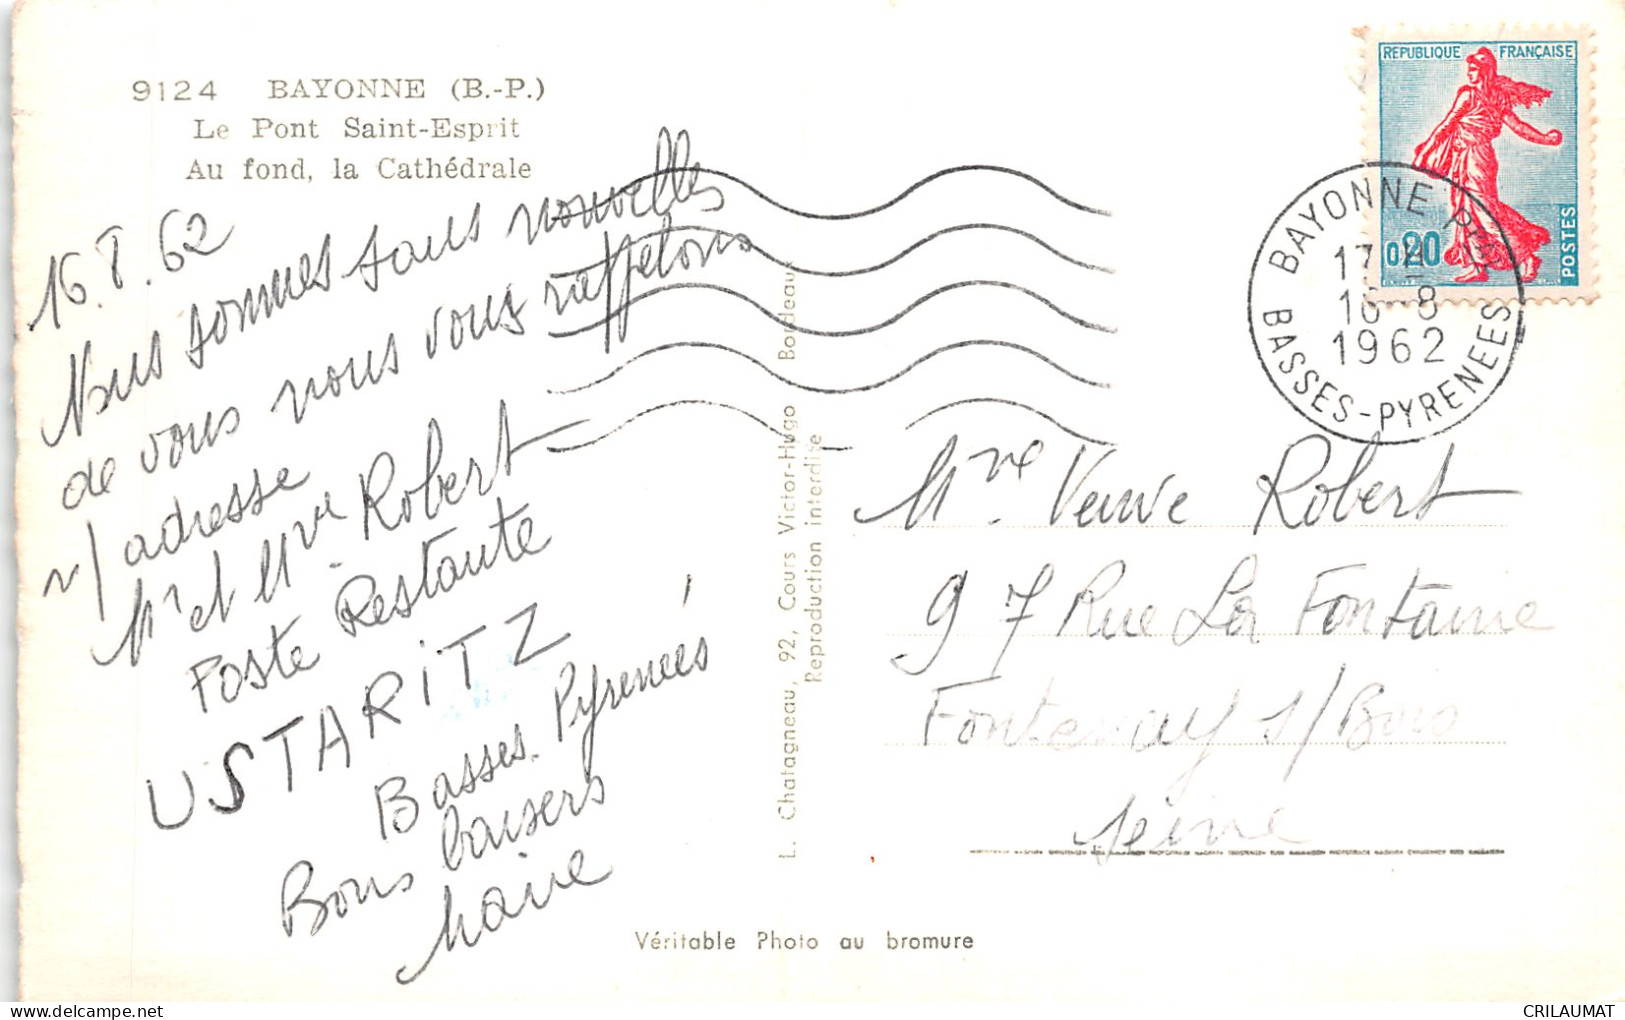 9124 BAYONNE (B.-P.)
Le Pont Saint-Esprit
Au fond, la Cathédrale
16.8.62
Nous sommes sans nouvelles
de vous nous vous rappelons
n/ adresse
Mr et Mme Robert
Poste Restante
USTARITZ
Basses-Pyrenées
Bons baisers
L. Chatagneau, 92, Cours Victor-Hugo Bordeaux
Reproduction interdite
Véritable Photo au bromure
REPUBLIQUE FRANÇAISE
0,20
POSTES
BAYONNE Pal
17 H
16-8
1962
BASSES-PYRENEES
Mme Veuve Robert
97 Rue La Fontaine
Fontenay s/ Bois
Seine
CRILAUMAT